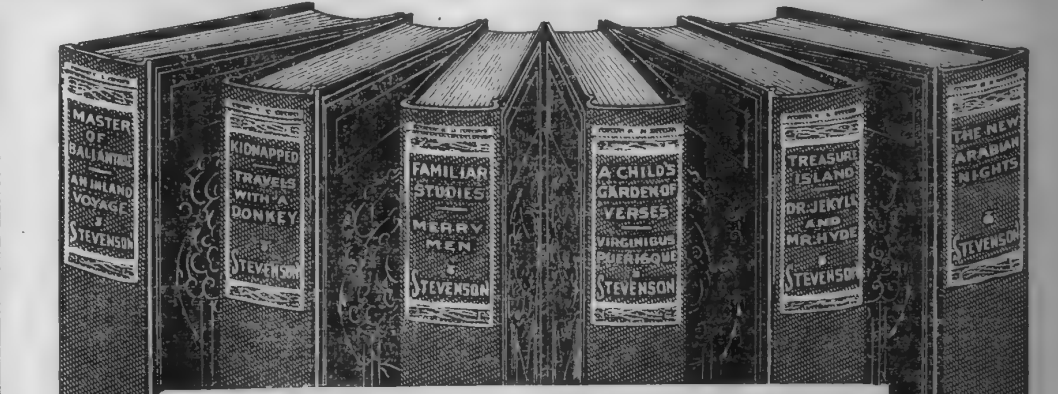 MASTER
OF
BALLANTRAE
AN INLAND
VOYAGE
STEVENSON
KIDNAPPED
TRAVELS
WITH A
DONKEY
STEVENSON
FAMILIAR
STUDIES
MERRY
MEN
STEVENSON
A CHILD'S
GARDEN OF
VERSES
VIRGINIBUS
PUERISQUE
STEVENSON
TREASURE
ISLAND
DR. JEKYLL
AND
MR. HYDE
STEVENSON
THE NEW
ARABIAN
NIGHTS
STEVENSON